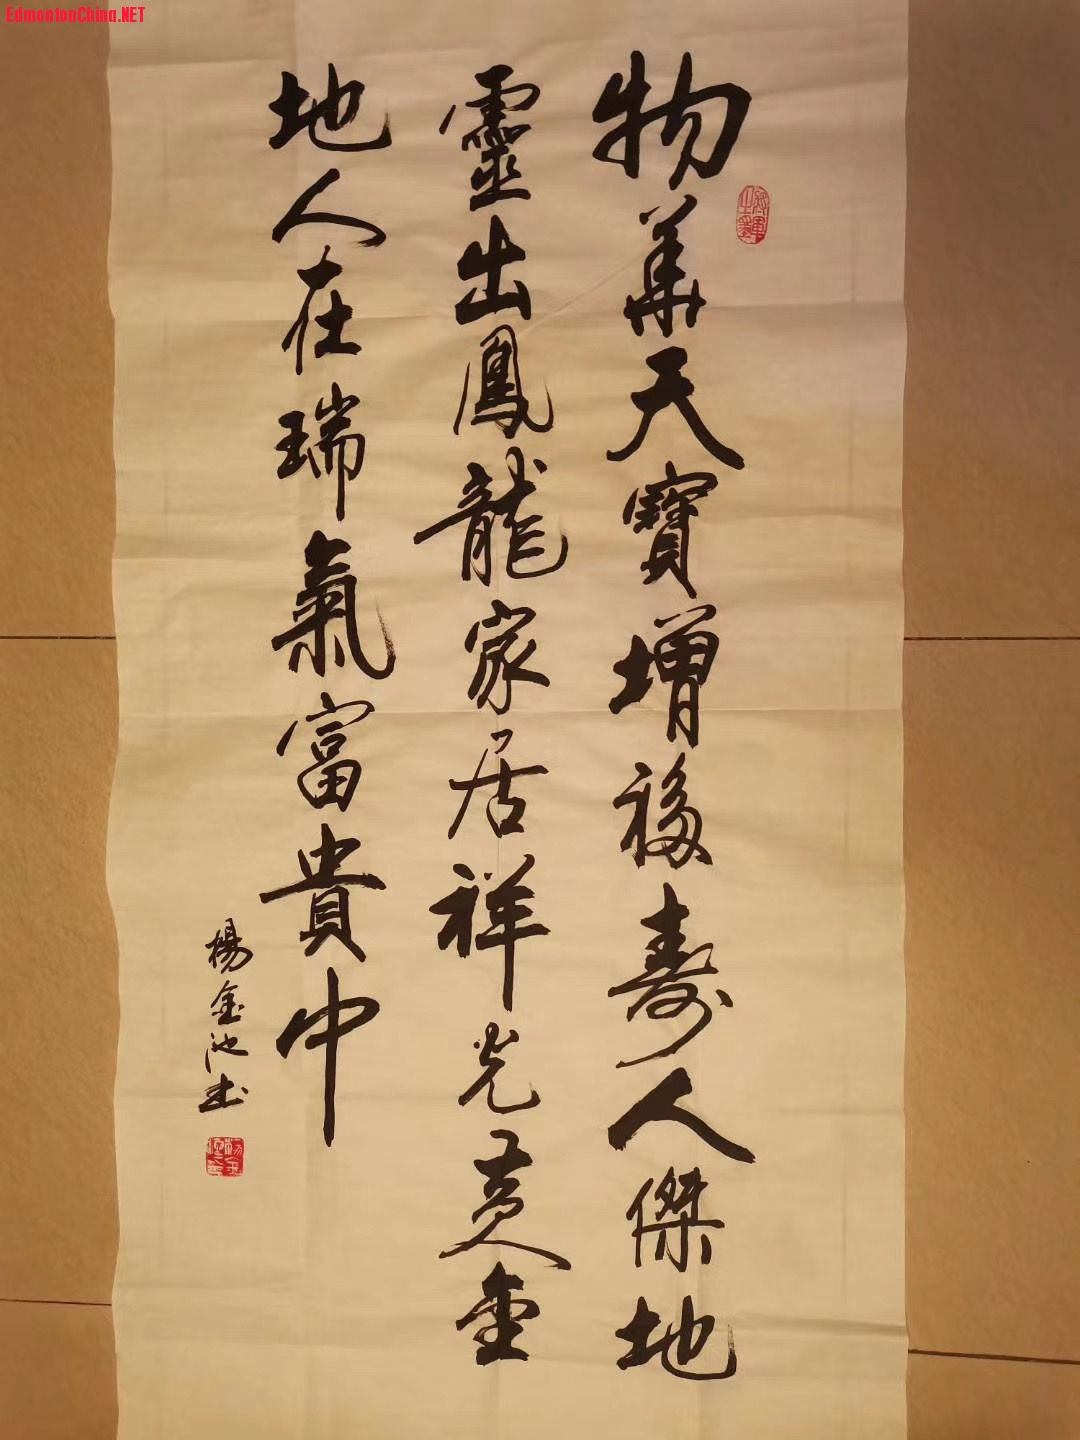 EdmontonChina.NET
物華天寶增福壽人傑地
靈出鳳龍家居祥光黃金
地人在瑞氣富貴中
楊金池书